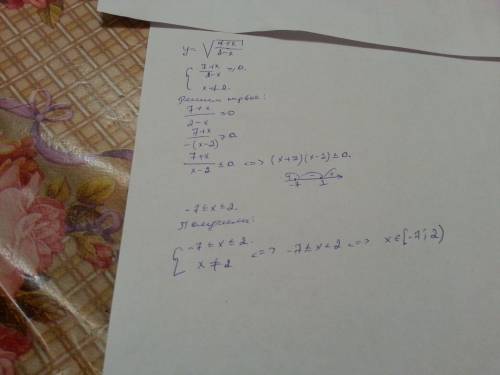 y = √((7+x)/(2-x))
{ (7+x)/(2-x) ≥ 0.
x ≠ 2.
Решаем первое:
(7+x)/(2-x) ≥ 0
(7+x)/(-(x-2)) ≥ 0.
(7+x)/(x-2) ≤ 0. <=> (x+7)(x-2) ≤ 0.
+ - +
-7 2
-7 ≤ x ≤ 2.
Получаем:
{ -7 ≤ x ≤ 2.
x ≠ 2 <=> -7 ≤ x < 2 <=> x ∈ [-7; 2)